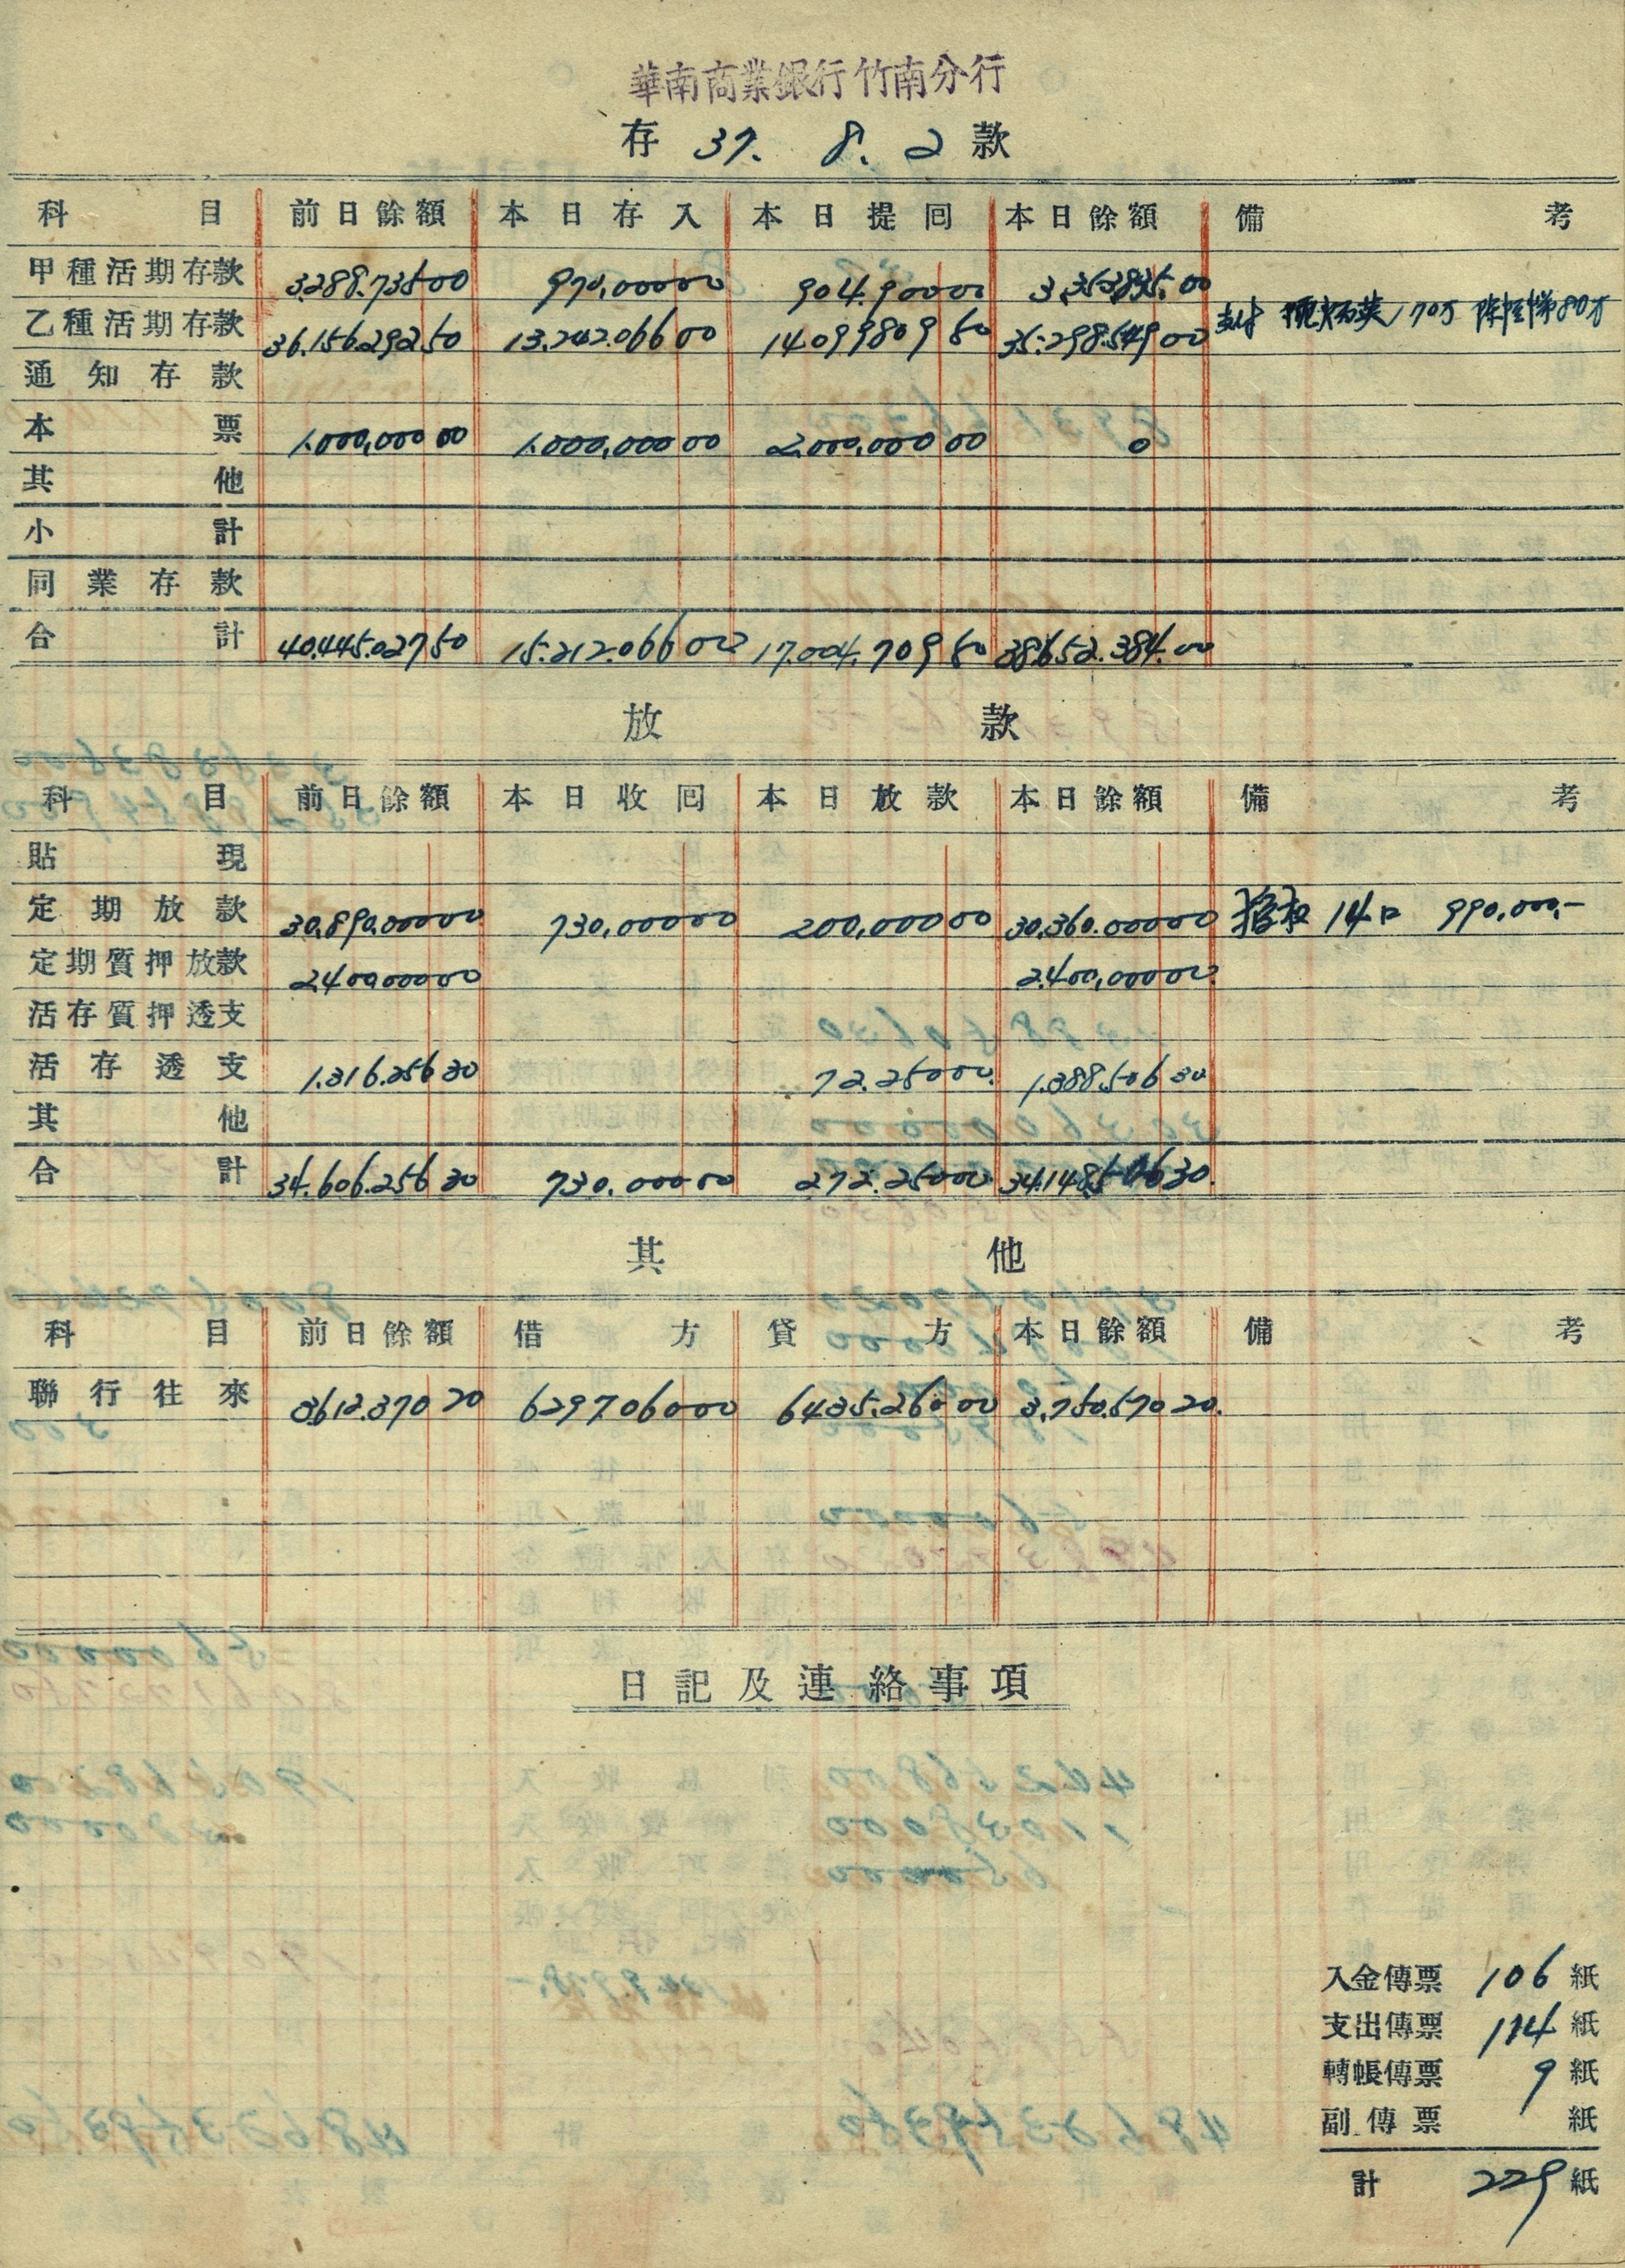 華南商業銀行竹南分行
存 37. 8. 2 款
科目 前日餘額 本日存入 本日提囘 本日餘額 備考
甲種活期存款 3,288.735 00 970,000 00 904.900 00 3,353,835.00
乙種活期存款 36.156.292 50 13.242.066 00 14.099809 50 35.298.549 00 170万 80万
通知存款
本票 1.000,000 00 1.000,000 00 2,000,000 00 0
其他
小計
同業存款
合計 40.445.027 50 15.212.066 00 17.004.709 50 38.652.384.00
放款
科目 前日餘額 本日收囘 本日放款 本日餘額 備考
貼現
定期放款 30,890,000 00 730,000 00 200,000 00 30,360.000 00 14口 990,000,-
定期質押放款 2400000 00 2.400,000 00
活存質押透支
活存透支 1.316.256 30 72.250 00 1.388.506 30
其他
合計 34.606.256 30 730.000 00 272.250 00 34.148.506 30.
其他
科目 前日餘額 借方 貸方 本日餘額 備考
聯行往來 3,612.370 20 6297.060 00 6435.260 00 3,750.570 20.
日記及連絡事項
入金傳票 106 紙
支出傳票 114 紙
轉帳傳票 9 紙
副傳票 紙
計 229 紙